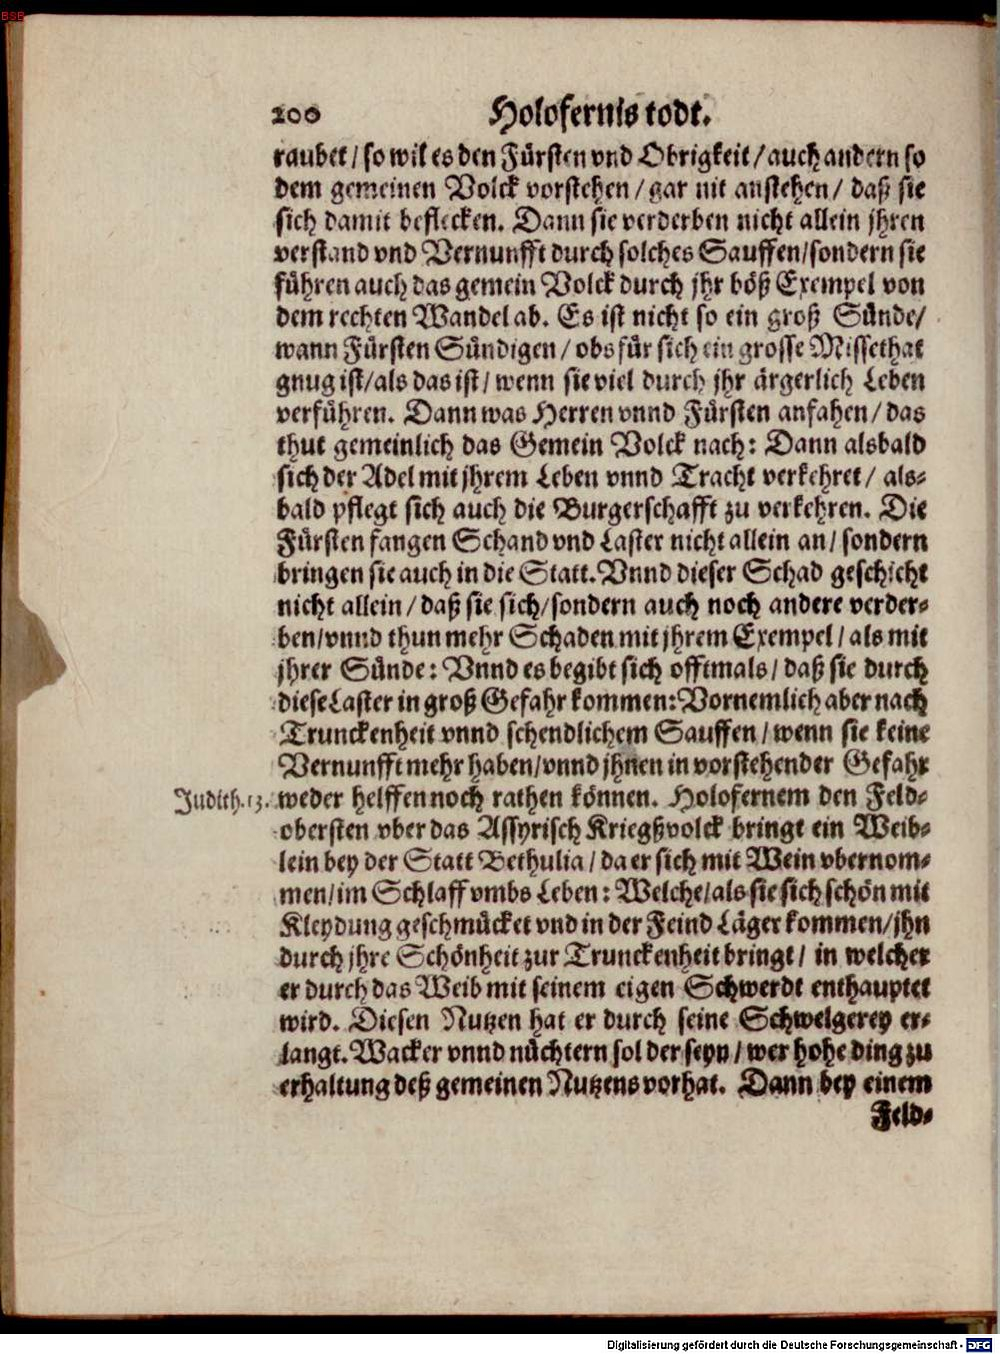 BSB
200 Holofernis todt.
raubet / so wil es den Fürsten vnd Obrigkeit / auch andern so
dem gemeinen Volck vorstehen / gar nit anstehen / daß sie
sich damit beflecken. Dann sie verderben nicht allein jhren
verstand vnd Vernunfft durch solches Sauffen / sondern sie
führen auch das gemein Volck durch jhr böß Exempel von
dem rechten Wandel ab. Es ist nicht so ein groß Sünde /
wann Fürsten Sündigen / obs für sich ein grosse Missethat
gnug ist / als das ist / wenn sie viel durch jhr ärgerlich Leben
verführen. Dann was Herren vnnd Fürsten anfahen / das
thut gemeinlich das Gemein Volck nach: Dann alsbald
sich der Adel mit jhrem Leben vnnd Tracht verkehret / als-
bald pflegt sich auch die Burgerschafft zu verkehren. Die
Fürsten fangen Schand vnd Laster nicht allein an / sondern
bringen sie auch in die Statt. Vnnd dieser Schad geschicht
nicht allein / daß sie sich / sondern auch noch andere verder-
ben / vnnd thun mehr Schaden mit jhrem Exempel / als mit
jhrer Sünde: Vnnd es begibt sich offtmals / daß sie durch
diese Laster in groß Gefahr kommen: Vornemlich aber nach
Trunckenheit vnnd schendlichem Sauffen / wenn sie keine
Vernunfft mehr haben / vnnd jhnen in vorstehender Gefahr
Judith. 13. weder helffen noch rathen können. Holofernem den Feld-
obersten vber das Assyrisch Kriegßvolck bringt ein Weib-
lein bey der Statt Bethulia / da er sich mit Wein vbernom-
men / im Schlaff vmbs Leben: Welche / als sie sich schön mit
Kleydung geschmücket vnd in der Feind Läger kommen / jhn
durch jhre Schönheit zur Trunckenheit bringt / in welcher
er durch das Weib mit seinem eigen Schwerdt enthauptet
wird. Diesen Nutzen hat er durch seine Schwelgerey er-
langt. Wacker vnnd nüchtern sol der seyn / wer hohe ding zu
erhaltung deß gemeinen Nutzens vorhat. Dann bey einem
Feld-
Digitalisierung gefördert durch die Deutsche Forschungsgemeinschaft - DFG